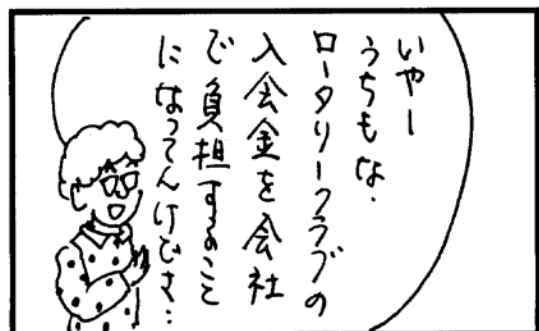 いやー
うちもな.
ロータリークラブの
入会金を会社
で負担すること
になってんけどさ…